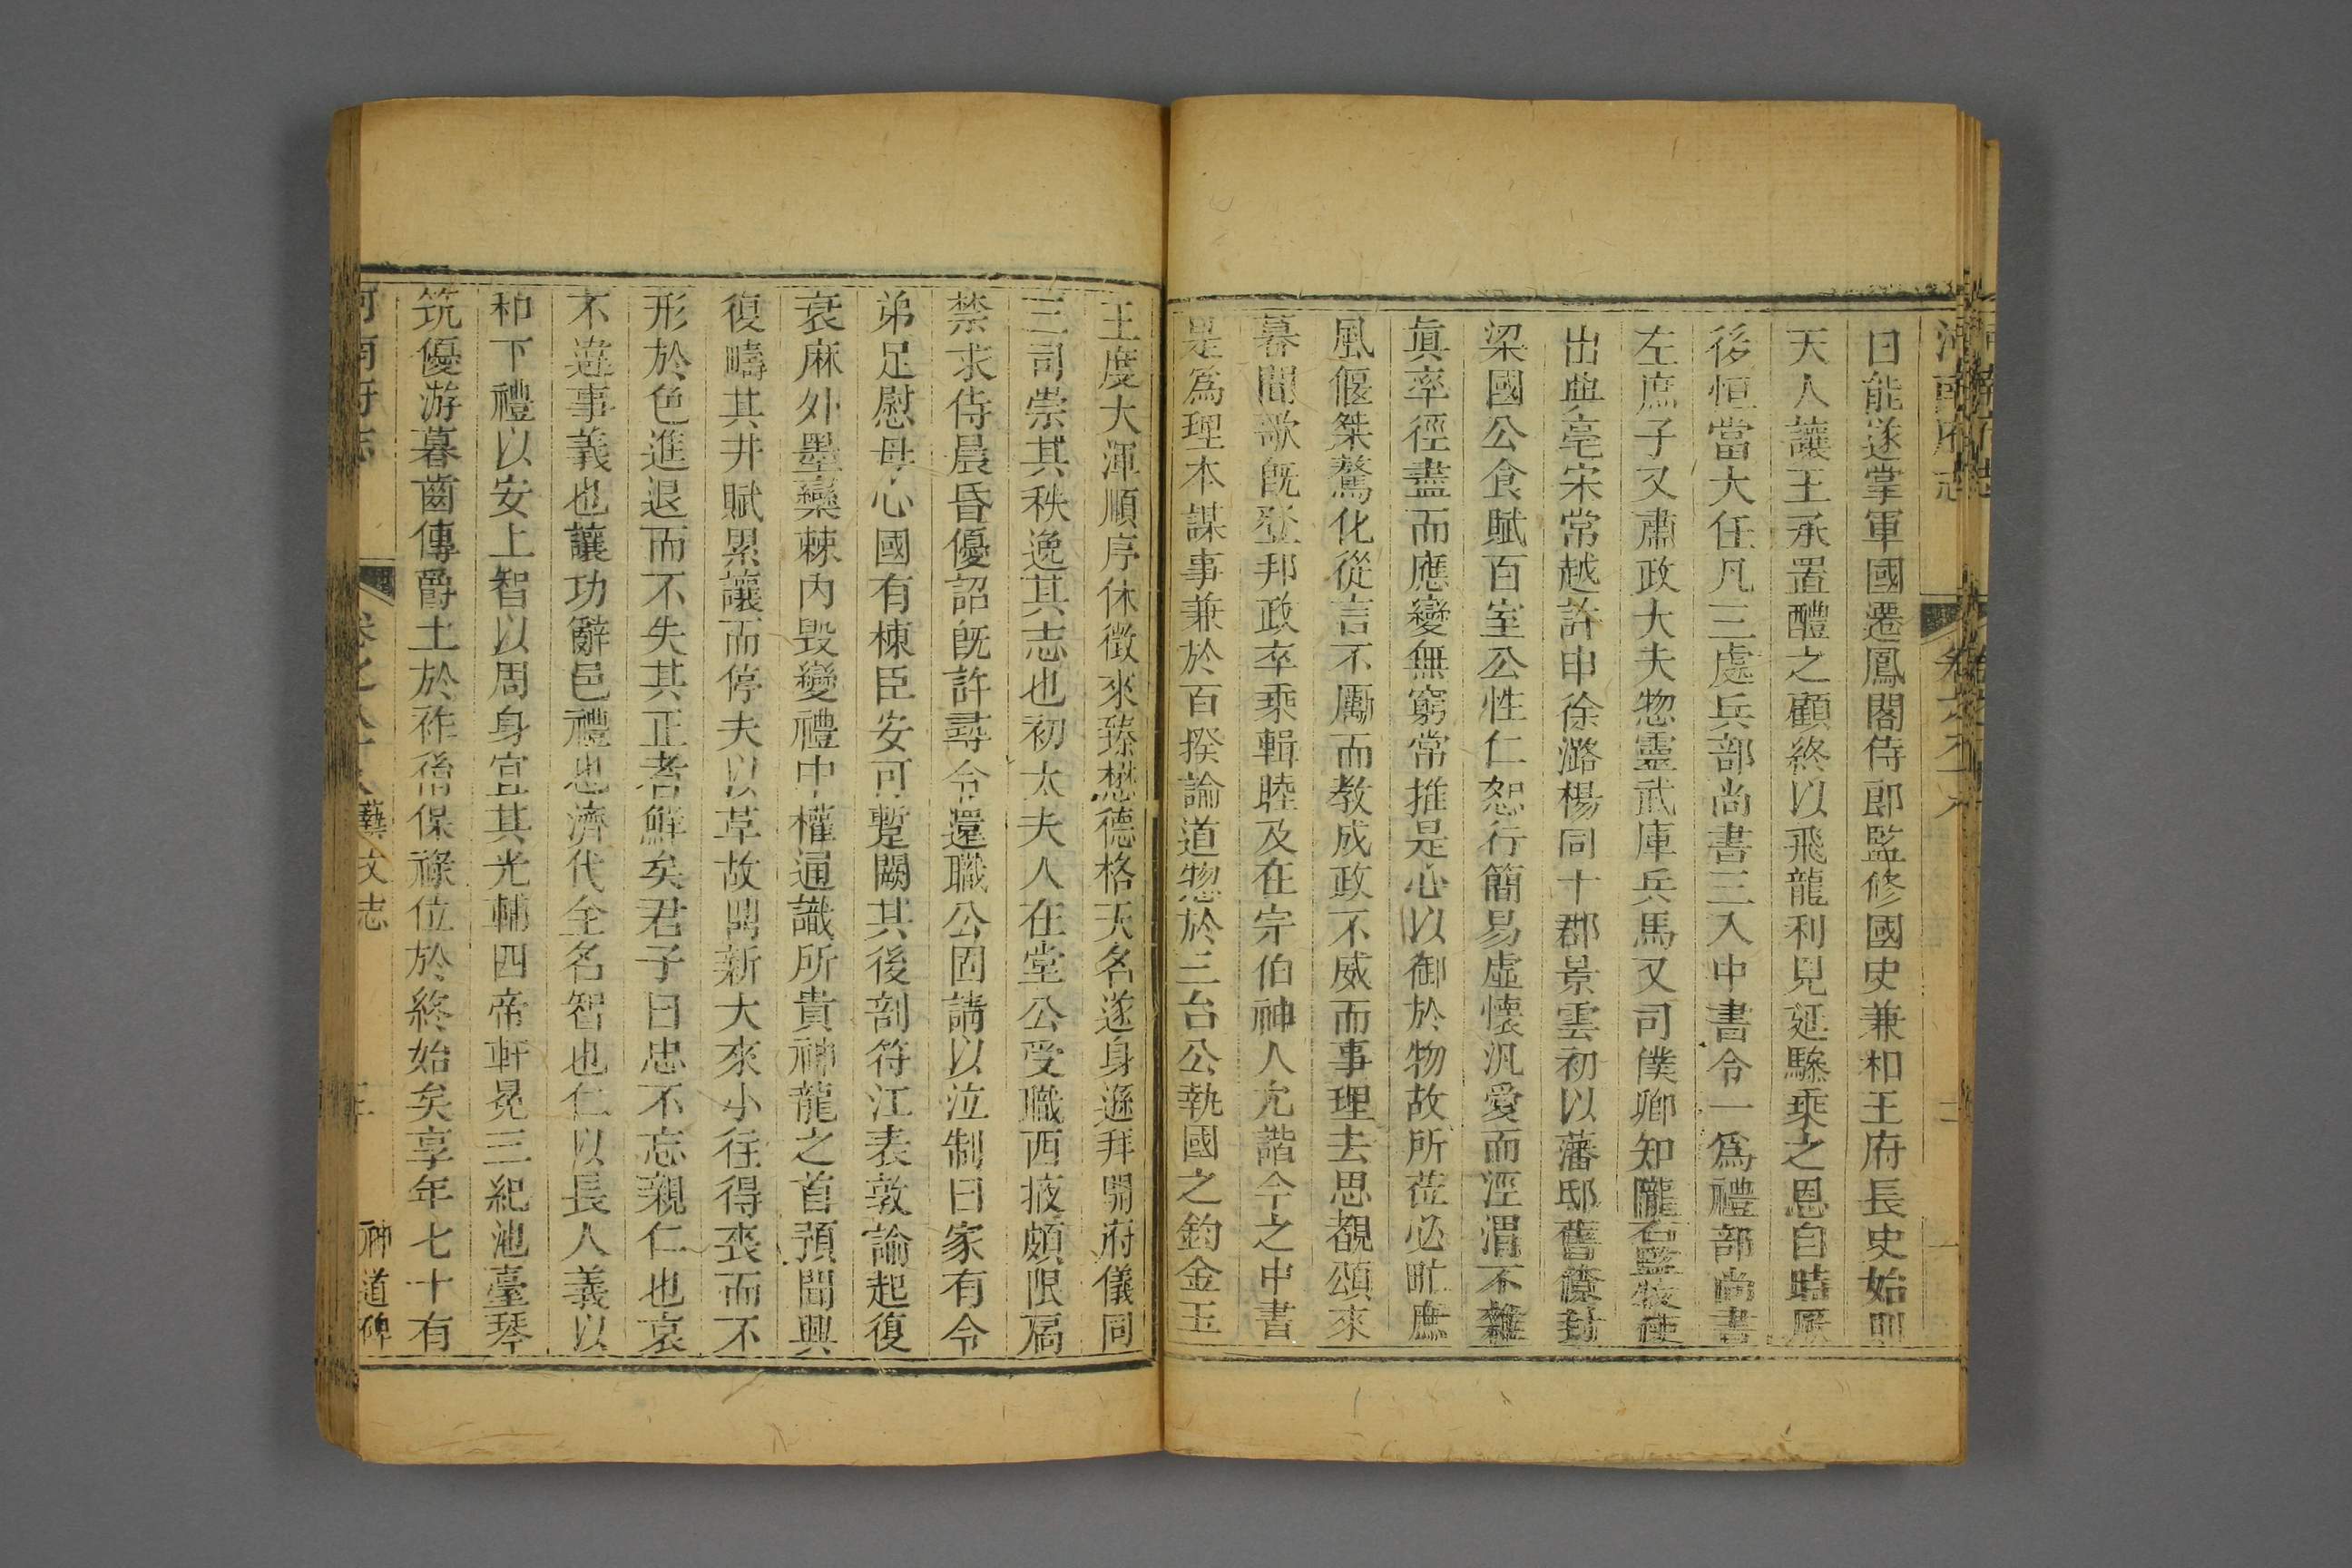 河南府志
曰能遂掌軍國遷鳳閣侍郎監修國史兼和王府長史始則
天人讓王承置醴之顧終以飛龍利見延驂乘之恩自時厥
後恒當大任凡三處兵部尚書三入中書令一爲禮部尚書
左庶子又肅政大夫惣靈武庫兵馬又司僕卿知隴右監牧使
出典亳宋常越許申徐潞楊同十郡景雲初以藩邸舊僚封
梁國公食賦百室公性仁恕行簡易虛懷汎愛而涇渭不雜
眞率徑盡而應變無窮常推是心以御於物故所莅必甿庶
風偃桀驁化從言不厲而教成政不威而事理去思覩頌來
暮聞歌旣登邦政卒乘輯睦及在宗伯神人允諧今之中書
是爲理本謀事兼於百揆論道惣於三台公執國之鈞金玉
王度大渾順序休徵來臻懋德格天名遂身遜拜開府儀同
三司崇其秩逸其志也初太夫人在堂公受職西掖頗限扃
禁求侍晨昏優詔旣許尋令還職公固請以泣制曰家有令
弟足慰母心國有棟臣安可蹔闕其後剖符江表敦諭起復
衰麻外墨欒棘內毀變禮中權通識所貴神龍之首預聞興
復疇其井賦累讓而停夫以革故鼎新大來小往得喪而不
形於色進退而不失其正者鮮矣君子曰忠不忘親仁也哀
不違事義也讓功辭邑禮也濟代全名智也仁以長人義以
和下禮以安上智以周身宜其光輔四帝軒冕三紀池臺琴
筑優游暮齒傳爵土於祚胤保祿位於終始矣享年七十有
河南府志
卷之八十八
藝文志
神道碑